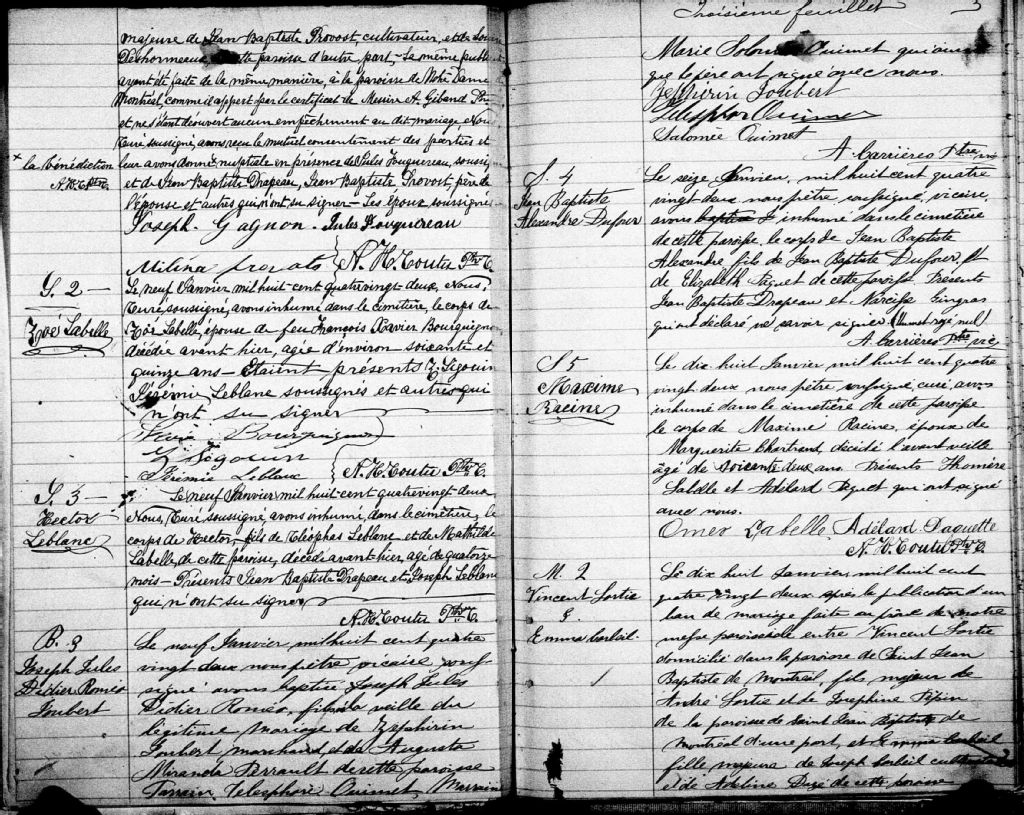 majeure de Jean Baptiste Provost, cultivateur, et de
Deshormeaux, de cette paroisse d'autre part - La même publi
ayant été faite de la même manière, à la paroisse de Notre Dame
Montréal, comme d'appert par le certificat de Messire A. Giband
et ne s'étant découvert aucun empêchement au dit mariage, Nous
Curé soussigné, avons reçu le mutuel consentement des parties et
x la bénédiction
A. H. C. Ptre C.
leur avons donné x nuptiale en présence de Jules Fouquereau, soussi
et de Jean Baptiste Drapeau, Jean Baptiste Provost, père de
l'épouse et autres qui n'ont su signer - Les époux soussignés
Joseph Gagnon - Jules Fouquereau
Milina provots A. H. Coutu Ptre C.
S. 2 -
Zoé Labelle
Le neuf Janvier mil huit cent quatrevingt deux, Nous,
Curé, soussigné, avons inhumé dans le cimetière, le corps de
Zoé Labelle, épouse de feu François Xavier Bourguignon
décédée avant hier, agée d'environ soixante et
quinze ans - Etaient présents Z. Sigouin
Jérémie Leblanc soussignés et autres qui
n'ont su signer
Bourguignon
Z. Sigouin
Jérémie Leblanc A. H. Coutu Ptre C.
S. 3 -
Hector
Leblanc
Le neuf Janvier mil huit cent quatrevingt deux
Nous, Curé soussigné, avons inhumé, dans le cimetière, le
corps de Hector, fils de Cléophas Leblanc et de Mathilde
Labelle, de cette paroisse, décédé avant hier, agé de quatorze
mois - Présents Jean Baptiste Drapeau et Joseph Leblanc
qui n'ont su signer
A. H. Coutu Ptre C.
B. 3
Joseph Jules
Didier Roméo
Joubert
Le neuf Janvier mil huit cent quatre
vingt deux nous prêtre vicaire, sous
signé avons baptisé Joseph Jules
Didier Roméo, fils né la veille du
légitime mariage de Zéphirin
Joubert marchand et de Augusta
Miranda Perrault de cette paroisse
Parrain Telesphore Ouimet Marraine
Troisième feuillet 3
Marie Ouimet qui ainsi
que le père ont signé avec nous.
Zéphirin Joubert
Telesphor Ouimet
Salomée Ouimet
A. Carrières Ptre vic
S. 4
Jean Baptiste
Alexandre Dufour
Le seize Janvier, mil huit cent quatre
vingt deux nous prêtre, soussigné, vicaire,
avons inhumé dans le cimetière
de cette paroisse, le corps de Jean Baptiste
Alexandre fils de Jean Baptiste Dufour, et
de Elizabeth Paquet de cette paroisse. Présents
Jean Baptiste Drapeau et Narcisse Gingras
qui ont déclaré ne savoir signer (Un mot rayé nul)
A. Carrières Ptre vic
S 5
Maxime
Racine
Le dix huit Janvier mil huit cent quatre
vingt deux nous prêtre soussigné, curé, avons
inhumé dans le cimetière de cette paroisse
le corps de Maxime Racine, époux de
Marguerite Chartrand, décédé l'avant veille
âgé de soixante deux ans. Présents
Labelle et Adélard Paquet qui ont signé
avec nous.
Omer Labelle Adélard Paquette
A. H. Coutu Ptre C.
M. 2
Vincent Fortie
&
Emma Corbeil
Le dix huit Janvier, mil huit cent
quatre vingt deux après la publication d'un
ban de mariage faite au prône de notre
messe paroissiale entre Vincent Fortie
domicilié dans la paroisse de Saint Jean
Baptiste de Montréal, fils majeur de
André Fortie et de Josephine Pépin
de la paroisse de Saint Jean Baptiste de
Montréal d'une part, et Emma Corbeil
fille majeure de Joseph Corbeil cultivateur
et de Adeline de cette paroisse